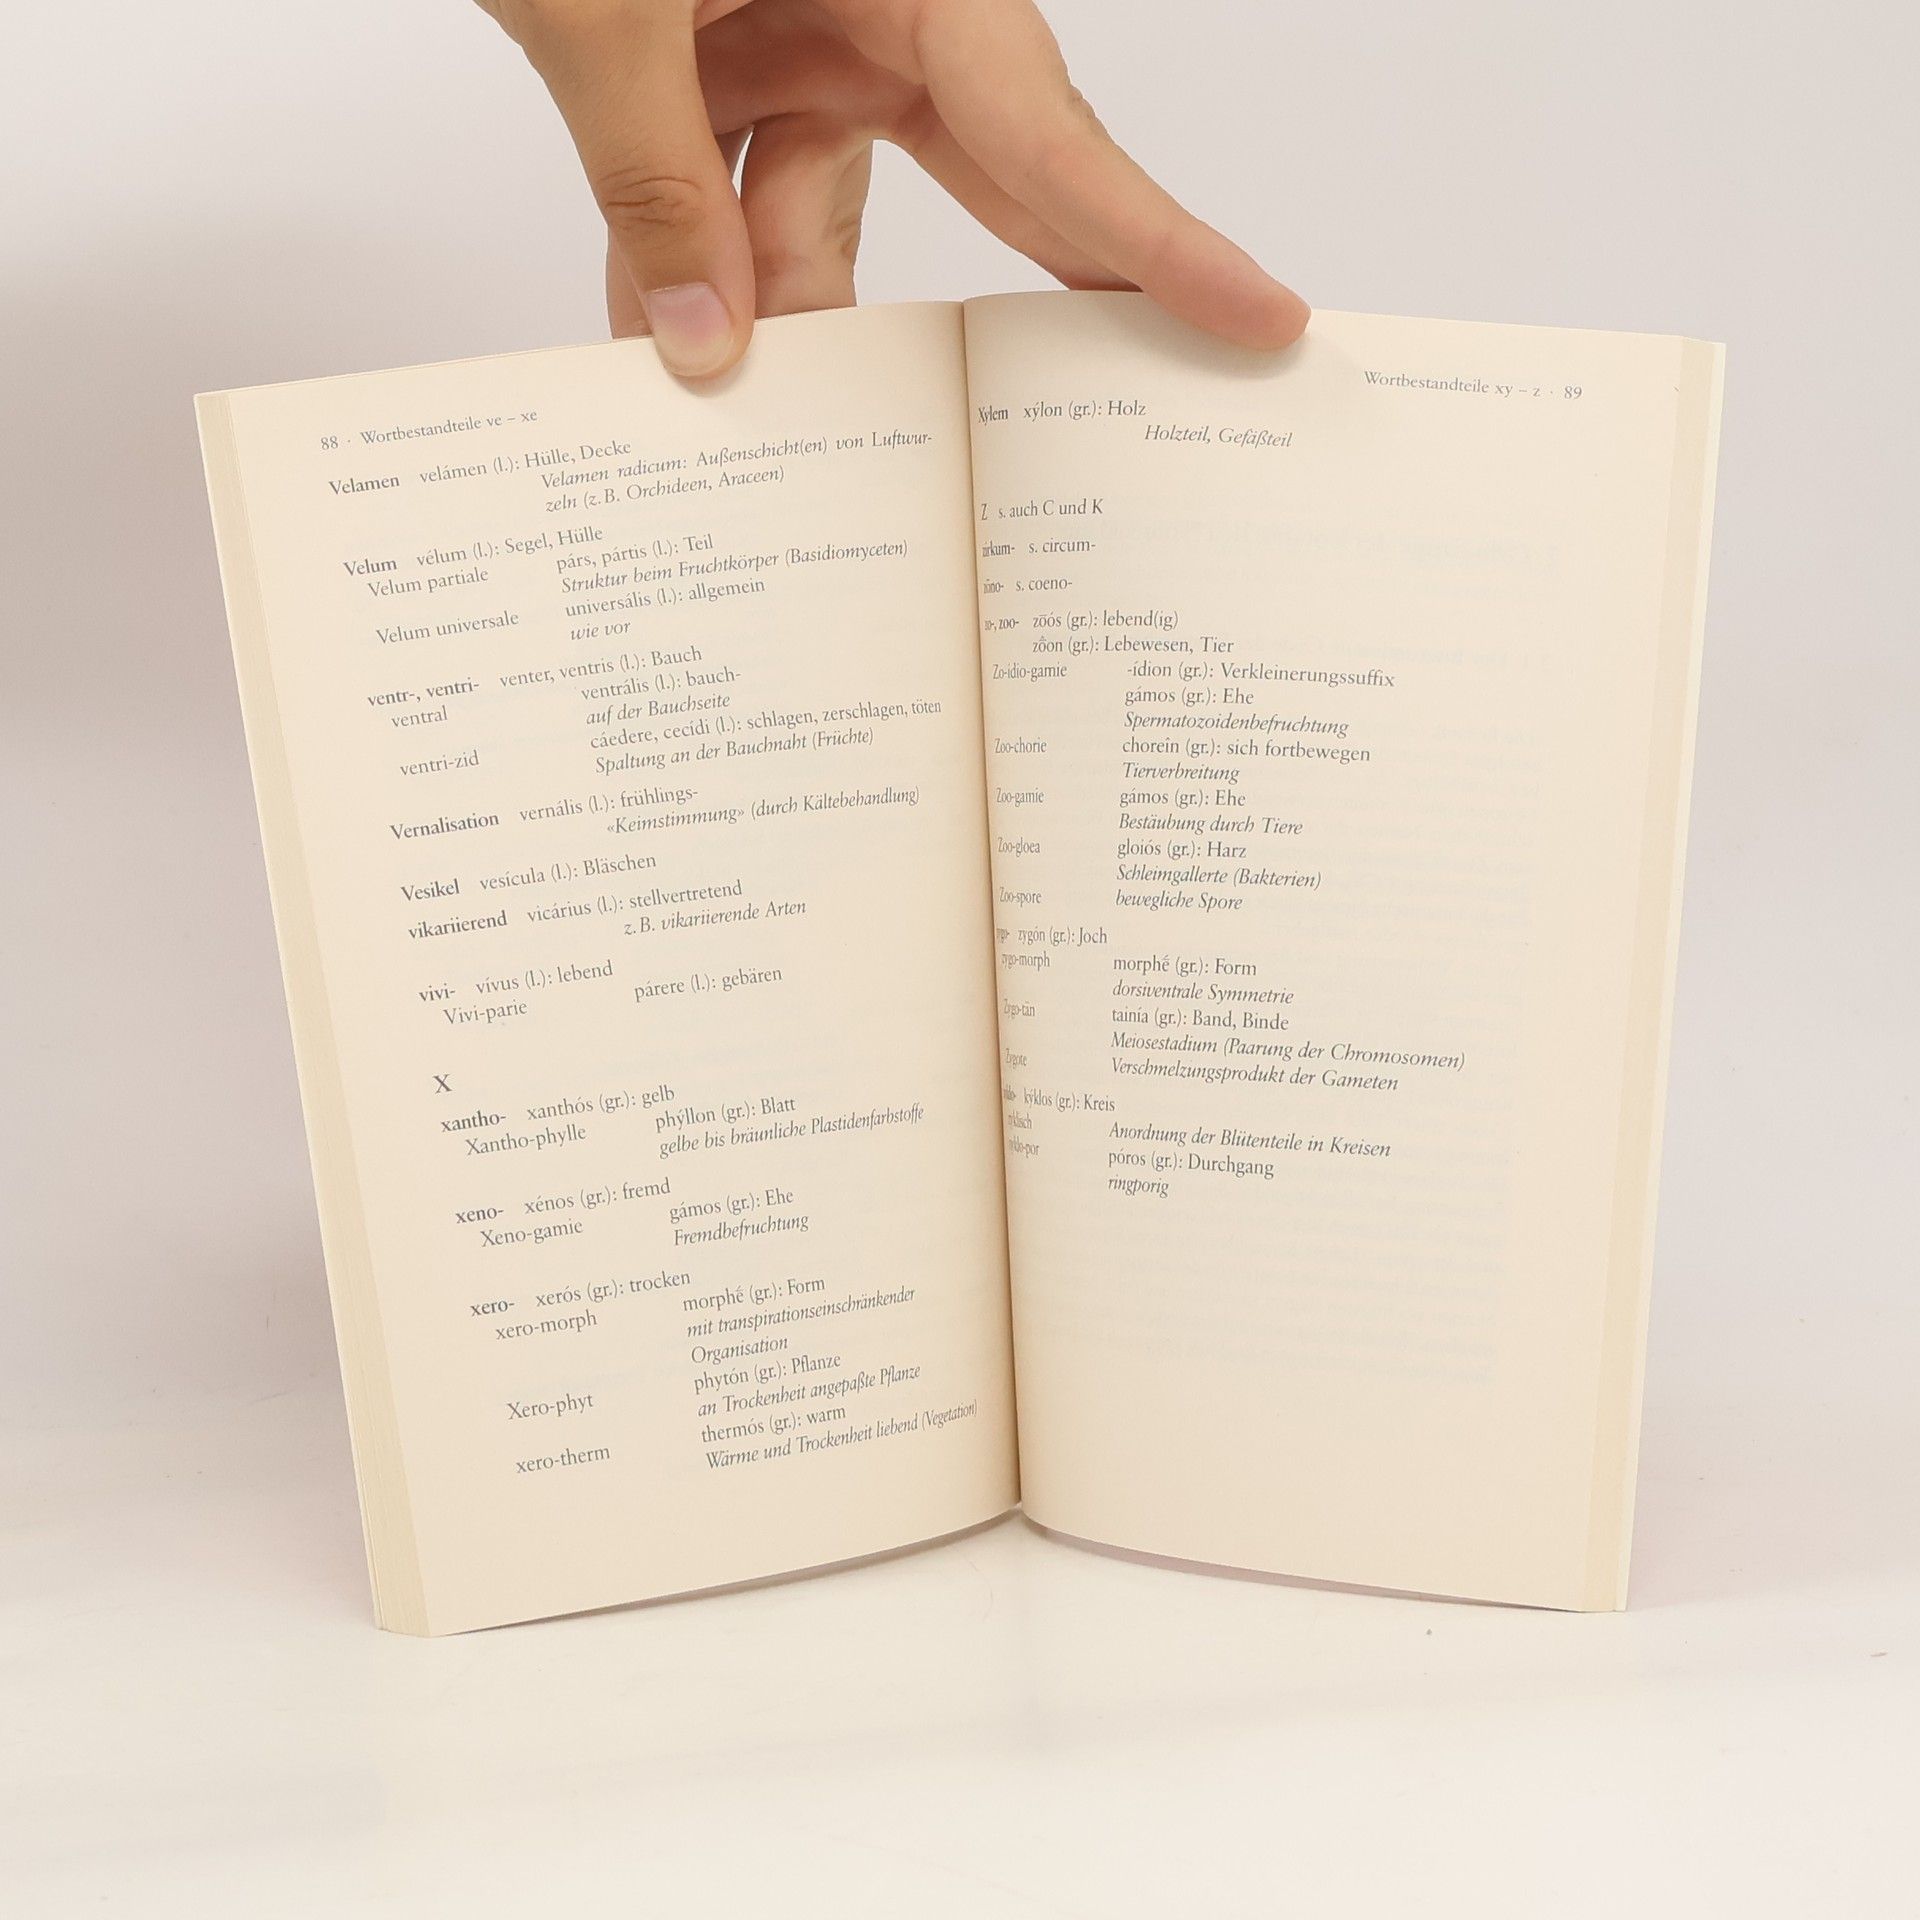 88 · Wortbestandteile ve – xe
Velamen velámen (l.): Hülle, Decke
Velamen radicum: Außenschicht(en) von Luftwur-
zeln (z. B. Orchideen, Araceen)
Velum vélum (l.): Segel, Hülle
Velum partiale párs, pártis (l.): Teil
Struktur beim Fruchtkörper (Basidiomyceten)
Velum universale universális (l.): allgemein
wie vor
ventr-, ventri- venter, ventris (l.): Bauch
ventral ventrális (l.): bauch-
auf der Bauchseite
ventri-zid cáedere, cecídi (l.): schlagen, zerschlagen, töten
Spaltung an der Bauchnaht (Früchte)
Vernalisation vernális (l.): frühlings-
«Keimstimmung» (durch Kältebehandlung)
Vesikel vesícula (l.): Bläschen
vikariierend vicárius (l.): stellvertretend
z. B. vikariierende Arten
vivi- vívus (l.): lebend
Vivi-parie párere (l.): gebären
X
xantho- xanthós (gr.): gelb
Xantho-phylle phýllon (gr.): Blatt
gelbe bis bräunliche Plastidenfarbstoffe
xeno- xénos (gr.): fremd
Xeno-gamie gámos (gr.): Ehe
Fremdbefruchtung
xero- xerós (gr.): trocken
xero-morph morphḗ (gr.): Form
mit transpirationseinschränkender
Organisation
Xero-phyt phytón (gr.): Pflanze
an Trockenheit angepaßte Pflanze
xero-therm thermós (gr.): warm
Wärme und Trockenheit liebend (Vegetation)
Wortbestandteile xy – z · 89
Xylem xýlon (gr.): Holz
Holzteil, Gefäßteil
Z s. auch C und K
zirkum- s. circum-
zöno- s. coeno-
zo-, zoo- zōós (gr.): lebend(ig)
zṓon (gr.): Lebewesen, Tier
Zo-ídio-gamie -ídion (gr.): Verkleinerungssuffix
gámos (gr.): Ehe
Spermatozoidenbefruchtung
Zoo-chorie choreîn (gr.): sich fortbewegen
Tierverbreitung
Zoo-gamie gámos (gr.): Ehe
Bestäubung durch Tiere
Zoo-gloea gloiós (gr.): Harz
Schleimgallerte (Bakterien)
Zoo-spore bewegliche Spore
zygo- zygón (gr.): Joch
zygo-morph morphḗ (gr.): Form
dorsiventrale Symmetrie
Zygo-tän tainía (gr.): Band, Binde
Meiosestadium (Paarung der Chromosomen)
Zygote Verschmelzungsprodukt der Gameten
kýklos (gr.): Kreis
zyklisch Anordnung der Blütenteile in Kreisen
zyklo-por póros (gr.): Durchgang
ringporig